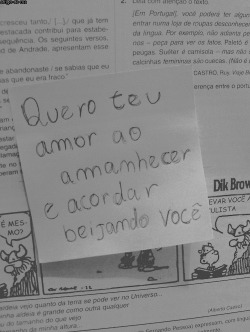 cresceu tanto, [...]/ que já tem
destacada contribui para estabe-
sequência. Os seguintes versos,
de Andrade, apresentam esse
abandonaste / se sabias que eu
as que eu era fraco"
2.
Leia com atenção o texto.
[Em Portugal], você poderá ter algun
entrar numa loja de roupas desconhecen
da língua. Por exemplo, não adiante pe
nos – peça para ver os fatos. Paletó é
peúgas. Suéter é camisola — mas
calcinhas femininas são cuecas. (Não é
CASTRO, Ruy. Viaje Be
erença entre o portu
Quero teu
amor ao
amanhecer
e acordar
beijando você
Dik Brow
É MES-
MO?
aldeia vejo quanto da terra se pode ver no Universo...
minha aldeia é grande como outra qualquer
do tamanho do que vejo
minha altura...
(Alberto Caeiro)